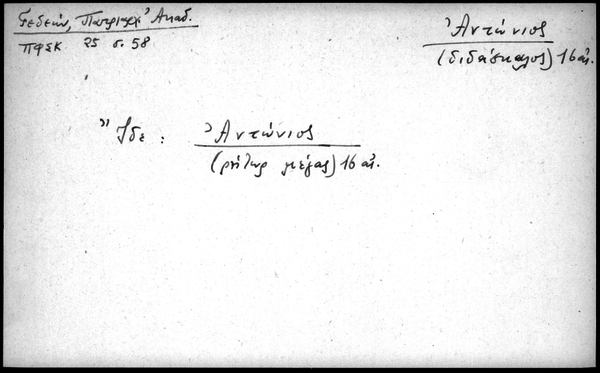 Γεδεών, Πατριαρχ. Ἀκαδ.
ΠΦΣΚ 25 σ. 58
Ἀντώνιος
(διδάσκαλος) 16 αἰ.
Ἴδε : Ἀντώνιος
(ρήτωρ μέγας) 16 αἰ.